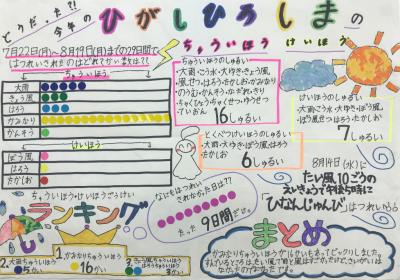 どうだった?!
今年の
ひがしひろしまの
ちゅういほう けいほう
7月22日(月)〜8月19日(月)までの29日間で
はつれいされたのはどれでかい
ちゅういほう
大雨
きょう風
はろう
かみなり
かんそう
けいほう
ぼう風
はろう
たかしお
ちゅういほうのしゅるい
・大雨・こう水・大ゆき・きょう風
・風せつ・はろう・たかしお・かみなり
・のうむ・かんそう・なだれ・きり
・ちゃくひょう・ちゃくせつ・ゆうせつ
・ていおん
16しゅるい
けいほうのしゅるい
・大雨・こう水・大ゆき・ぼう風
・ぼう風せつ・はろう・たかしお
7しゅるい
とくべつけいほうのしゅるい
・大雨・大ゆき・ぼう風・はろう
・たかしお
6しゅるい
なにもはつれい
されなかった日は??
たった9日間だけ。
8月14日(水)に
たい風10ごうの
えいきょうで午後5時に
「ひなんじゅんび」
はつれい
ちゅういほう・けいほうごうけい
ランキング
1.かみなりちゅういほう
16かい
2.大雨ちゅういほう
5かい
3.きょう風ちゅういほう
はろうちゅういほう
3かい
まとめ
かみなりちゅういほうが16かいもあってビックリしました。